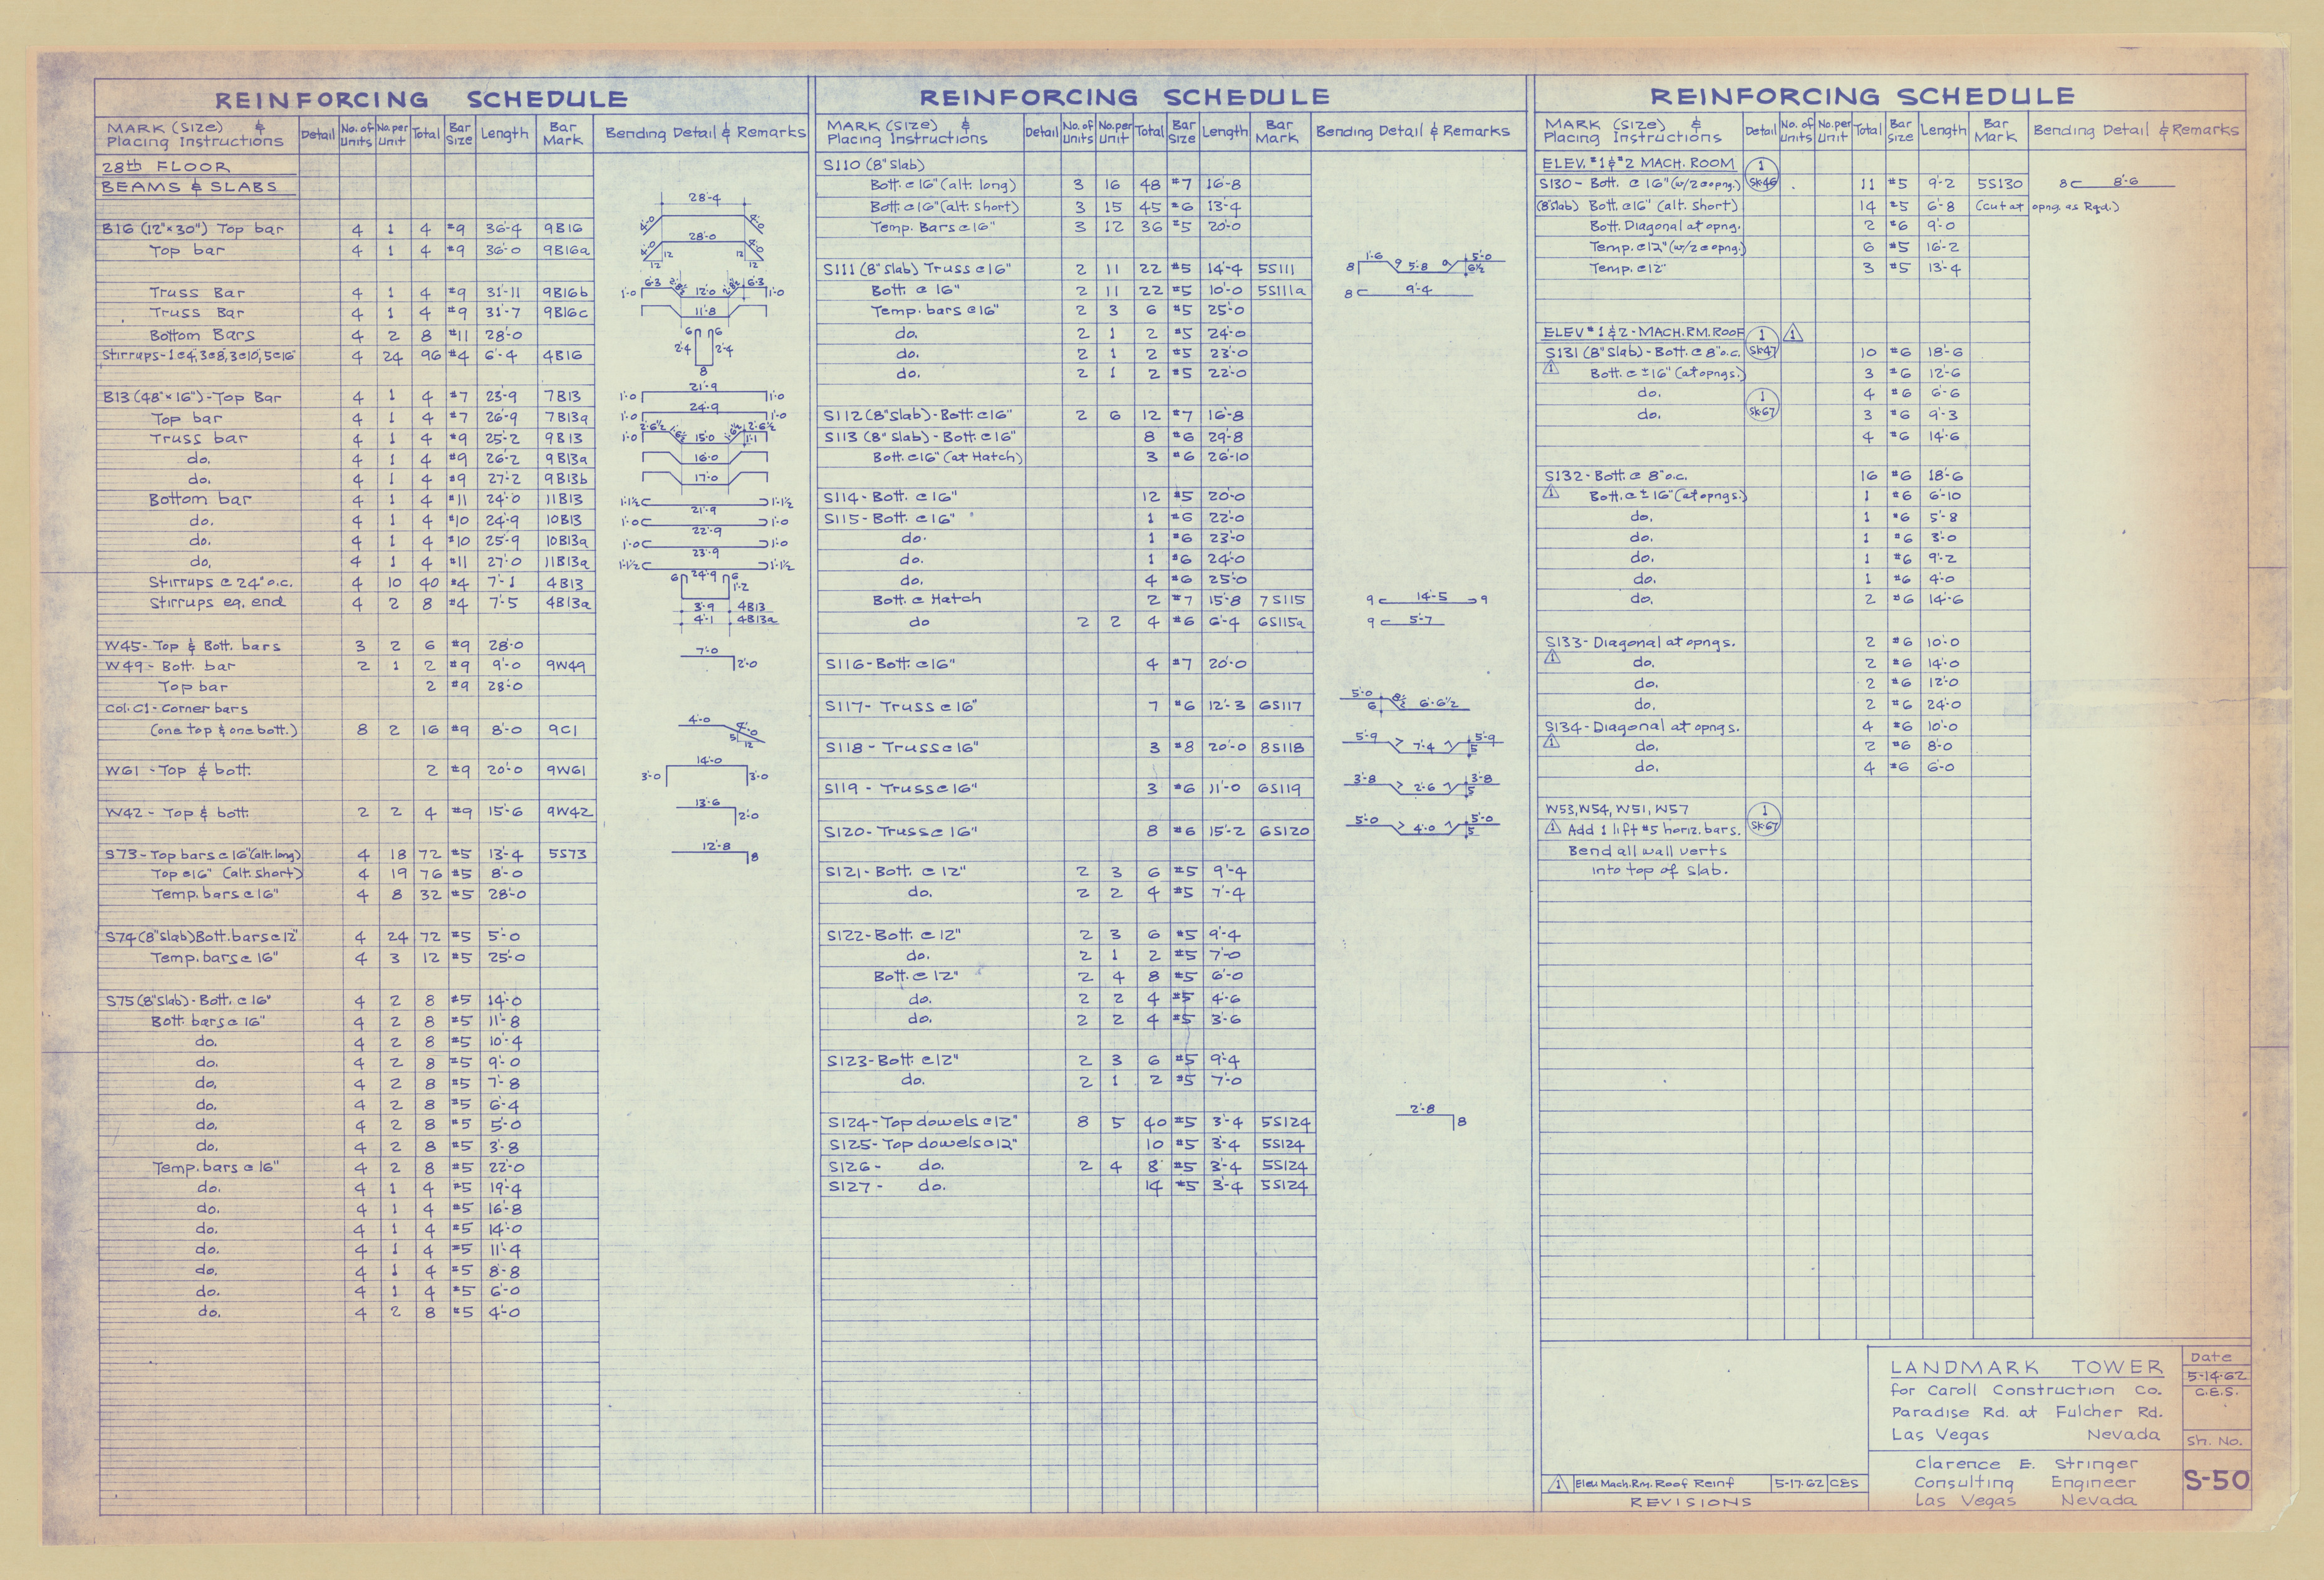 REINFORCING SCHEDULE
MARK (Size) & Placing Instructions | Detail | No. of Units | No. per Unit | Total | Bar Size | Length | Bar Mark | Bending Detail & Remarks
28th FLOOR
BEAMS & SLABS
28'-4
B16 (12"x30") Top bar 4 1 4 #9 36'-4 9B16
28'-0
Top bar 4 1 4 #9 36'-0 9B16a
12 12
12 12
Truss Bar 4 1 4 #9 31'-11 9B16b 1'-0 6'-3 12'-0 6'-3 1'-0
Truss Bar 4 1 4 #9 31'-7 9B16c 11'-8
Bottom Bars 4 2 8 #11 28'-0 6 6
Stirrups-1@4, 3@8, 3@10, 5@16 4 24 96 #4 6'-4 4B16 2'-4 2'-4
8
B13 (48"x16")-Top Bar 4 1 4 #7 23'-9 7B13 1'-0 21'-9 1'-0
Top bar 4 1 4 #7 26'-9 7B13a 1'-0 24'-9 1'-0
Truss bar 4 1 4 #9 25'-2 9B13 1'-0 2'-6½ 15'-0 2'-6½ 1'-1
do. 4 1 4 #9 26'-2 9B13a 16'-0
do. 4 1 4 #9 27'-2 9B13b 17'-0
Bottom bar 4 1 4 #11 24'-0 11B13 1'-1½ 21'-9 1'-1½
do. 4 1 4 #10 24'-9 10B13 1'-0 22'-9 1'-0
do. 4 1 4 #10 25'-9 10B13a 1'-0 23'-9 1'-0
do. 4 1 4 #11 27'-0 11B13a 1'-1½ 24'-9 1'-1½
Stirrups @ 24" o.c. 4 10 40 #4 7'-1 4B13 6 6 1'-2
Stirrups eq. end 4 2 8 #4 7'-5 4B13a 3'-9 4B13
4'-1 4B13a
W45- Top & Bott. bars 3 2 6 #9 28'-0
W49- Bott. bar 2 1 2 #9 9'-0 9W49 7'-0 2'-0
Top bar 2 #9 28'-0
Col. C1-Corner bars
(one top & one bott.) 8 2 16 #9 8'-0 9C1 4'-0 4'-0 5 12
W61 -Top & bott. 2 #9 20'-0 9W61 3'-0 14'-0 3'-0
W42- Top & bott. 2 2 4 #9 15'-6 9W42 13'-6 2'-0
S73-Top bars @ 16"(alt. long) 4 18 72 #5 13'-4 5S73 12'-8 8
Top @16" (alt. short) 4 19 76 #5 8'-0
Temp. bars @ 16" 4 8 32 #5 28'-0
S74 (8"slab) Bott. bars @ 12" 4 24 72 #5 5'-0
Temp. bars @ 16" 4 3 12 #5 25'-0
S75 (8"slab)-Bott. @ 16" 4 2 8 #5 14'-0
Bott. bars @ 16" 4 2 8 #5 11'-8
do. 4 2 8 #5 10'-4
do. 4 2 8 #5 9'-0
do. 4 2 8 #5 7'-8
do. 4 2 8 #5 6'-4
do. 4 2 8 #5 5'-0
do. 4 2 8 #5 3'-8
Temp. bars @ 16" 4 2 8 #5 22'-0
do. 4 1 4 #5 19'-4
do. 4 1 4 #5 16'-8
do. 4 1 4 #5 14'-0
do. 4 1 4 #5 11'-4
do. 4 1 4 #5 8'-8
do. 4 1 4 #5 6'-0
do. 4 2 8 #5 4'-0
REINFORCING SCHEDULE
MARK (Size) & Placing Instructions | Detail | No. of Units | No. per Unit | Total | Bar Size | Length | Bar Mark | Bending Detail & Remarks
S110 (8" slab)
Bott. @ 16" (alt. long) 3 16 48 #7 16'-8
Bott. @ 16" (alt. short) 3 15 45 #6 13'-4
Temp. Bars @ 16" 3 12 36 #5 20'-0
S111 (8" slab) Truss @ 16" 2 11 22 #5 14'-4 5S111 8 1'-6 9 5'-8 9 5'-0 6½
Bott. @ 16" 2 11 22 #5 10'-0 5S111a 8 9'-4
Temp. bars @ 16" 2 3 6 #5 25'-0
do. 2 1 2 #5 24'-0
do. 2 1 2 #5 23'-0
do. 2 1 2 #5 22'-0
S112 (8" slab)-Bott. @ 16" 2 6 12 #7 16'-8
S113 (8" slab)-Bott. @ 16" 8 #6 29'-8
Bott. @ 16" (at Hatch) 3 #6 26'-10
S114-Bott. @ 16" 12 #5 20'-0
S115-Bott. @ 16" 1 #6 22'-0
do. 1 #6 23'-0
do. 1 #6 24'-0
do. 4 #6 25'-0
Bott. @ Hatch 2 #7 15'-8 7S115 9 14'-5 9
do 2 2 4 #6 6'-4 6S115a 9 5'-7
S116-Bott. @ 16" 4 #7 20'-0
S117- Truss @ 16" 7 #6 12'-3 6S117 5'-0 6 8½ 6'-6½
S118 - Truss @ 16" 3 #8 20'-0 8S118 5'-9 7'-4 5'-9 5
S119 - Truss @ 16" 3 #6 11'-0 6S119 3'-8 2'-6 3'-8 5
S120-Truss @ 16" 8 #6 15'-2 6S120 5'-0 4'-0 5'-0 5
S121-Bott. @ 12" 2 3 6 #5 9'-4
do. 2 2 4 #5 7'-4
S122-Bott. @ 12" 2 3 6 #5 9'-4
do. 2 1 2 #5 7'-0
Bott. @ 12" 2 4 8 #5 6'-0
do. 2 2 4 #5 4'-6
do. 2 2 4 #5 3'-6
S123-Bott. @ 12" 2 3 6 #5 9'-4
do. 2 1 2 #5 7'-0
S124-Top dowels @ 12" 8 5 40 #5 3'-4 5S124 2'-8 8
S125-Top dowels @ 12" 10 #5 3'-4 5S124
S126- do. 2 4 8 #5 3'-4 5S124
S127- do. 14 #5 3'-4 5S124
REINFORCING SCHEDULE
MARK (Size) & Placing Instructions | Detail | No. of Units | No. per Unit | Total | Bar Size | Length | Bar Mark | Bending Detail & Remarks
ELEV. #1 & #2 MACH. ROOM 1 SK-46
S130- Bott. @ 16" (w/2 @ opng.) 11 #5 9'-2 5S130 8 8'-6
(8"slab) Bott. @ 16" (alt. short) 14 #5 6'-8 (cut at opng. as Rqd.)
Bott. Diagonal at opng. 2 #6 9'-0
Temp. @ 12" (w/2 @ opng.) 6 #5 16'-2
Temp. @ 12" 3 #5 13'-4
ELEV #1 & 2 - MACH. RM. ROOF 1 SK-47 1
S131 (8" Slab)-Bott. @ 8" o.c. 10 #6 18'-6
1 Bott. @ ±16" (at opngs.) 3 #6 12'-6
do. 1 SK-67 4 #6 6'-6
do. 3 #6 9'-3
4 #6 14'-6
S132-Bott. @ 8" o.c. 16 #6 18'-6
1 Bott. @ ±16" (at opngs.) 1 #6 6'-10
do. 1 #6 5'-8
do. 1 #6 3'-0
do. 1 #6 9'-2
do. 1 #6 4'-0
do. 2 #6 14'-6
S133-Diagonal at opngs. 2 #6 10'-0
1 do. 2 #6 14'-0
do. 2 #6 12'-0
do. 2 #6 24'-0
S134-Diagonal at opngs. 4 #6 10'-0
1 do. 2 #6 8'-0
do. 4 #6 6'-0
W53, W54, W51, W57 1 SK-67
1 Add 1 lift #5 horiz. bars.
Bend all wall verts
into top of slab.
LANDMARK TOWER
for Caroll Construction Co.
Paradise Rd. at Fulcher Rd.
Las Vegas Nevada
Clarence E. Stringer
Consulting Engineer
Las Vegas Nevada
Date
5-14-62
C.E.S.
Sh. No.
S-50
1 Elev Mach. Rm. Roof Reinf 5-17-62 CES
REVISIONS